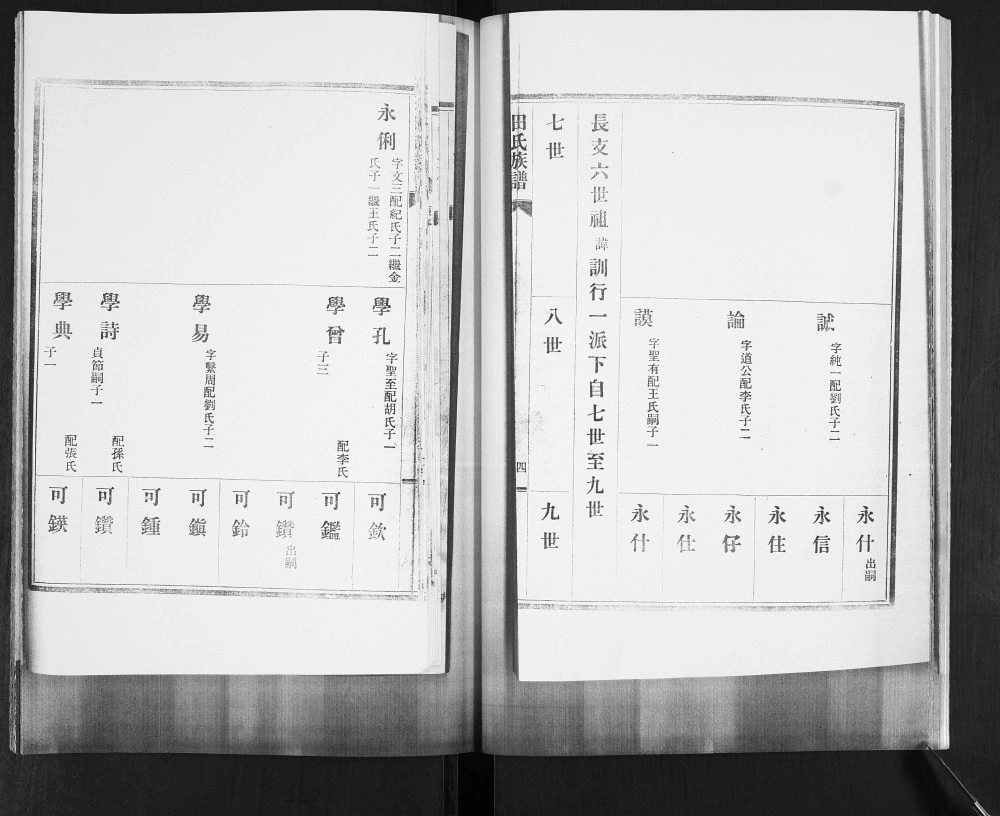 誠 字純一配劉氏子二
論 字道公配李氏子二
謨 字聖有配王氏嗣子一
永什 出嗣
永信
永住
永仔
永仕
永什
長支六世祖諱訓行一派下自七世至九世
七世
八世
九世
田氏族譜
四
永俐 字文三配紀氏子二繼金
氏子一繼王氏子二
學孔 字聖至配胡氏子一
學曾 配李氏
子三
學易 字繫周配劉氏子二
學詩 配孫氏
貞節嗣子一
學典 配張氏
子一
可欽
可鑑
可鑽 出嗣
可鈴
可鎭
可鍾
可鑽
可鍈